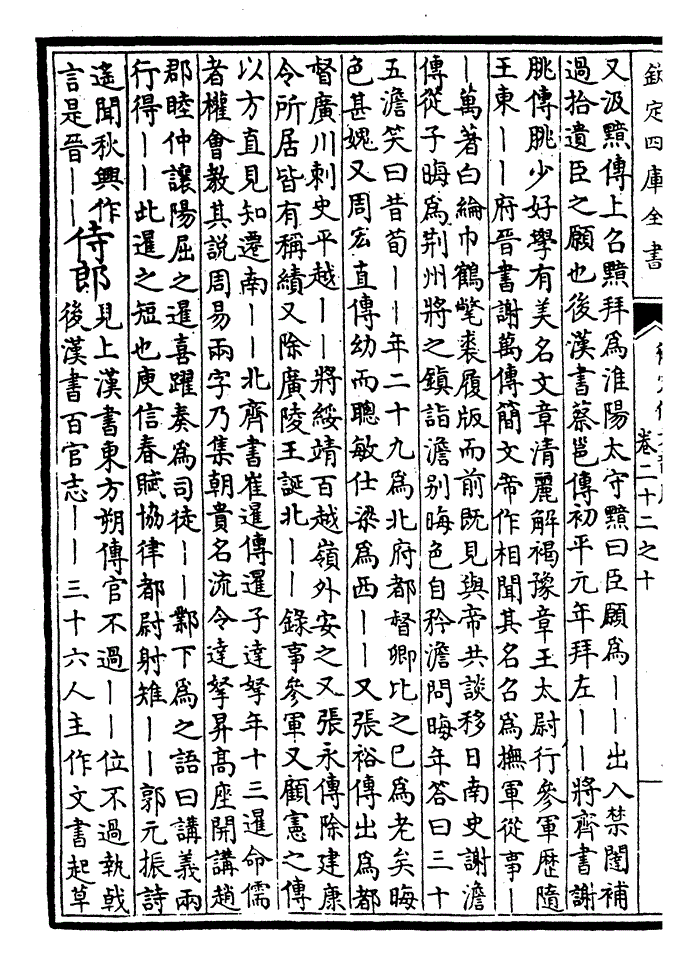 欽定四庫全書
卷二十二之十
又汲黯傳上召黯拜為淮陽太守黯曰臣願為——出入禁闥補
過拾遺臣之願也後漢書蔡邕傳初平元年拜左——將齊書謝
朓傳朓少好學有美名文章清麗解褐豫章王太尉行參軍歴隨
王東——府晉書謝萬傳簡文帝作相聞其名召為撫軍從事—
—萬著白綸巾鶴氅裘履版而前既見與帝共談移日南史謝澹
傳從子晦為荆州將之鎮詣澹别晦色自矜澹問晦年答曰三十
五澹笑曰昔荀——年二十九為北府都督卿比之已為老矣晦
色甚媿又周宏直傳幼而聰敏仕梁為西——又張裕傳出為都
督廣川刺史平越——將綏靖百越嶺外安之又張永傳除建康
令所居皆有稱績又除廣陵王誕北——錄事參軍又顧憲之傳
以方直見知遷南——北齊書崔暹傳暹子達拏年十三暹命儒
者權會教其說周易兩字乃集朝貴名流令達拏昇高座開講趙
郡睦仲讓陽屈之暹喜躍奏為司徒——鄴下為之語曰講義兩
行得——此暹之短也庾信春賦協律都尉射雉——郭元振詩
遙聞秋興作
言是晉——
侍郎
見上漢書東方朔傳官不過——位不過執戟
後漢書百官志——三十六人主作文書起草